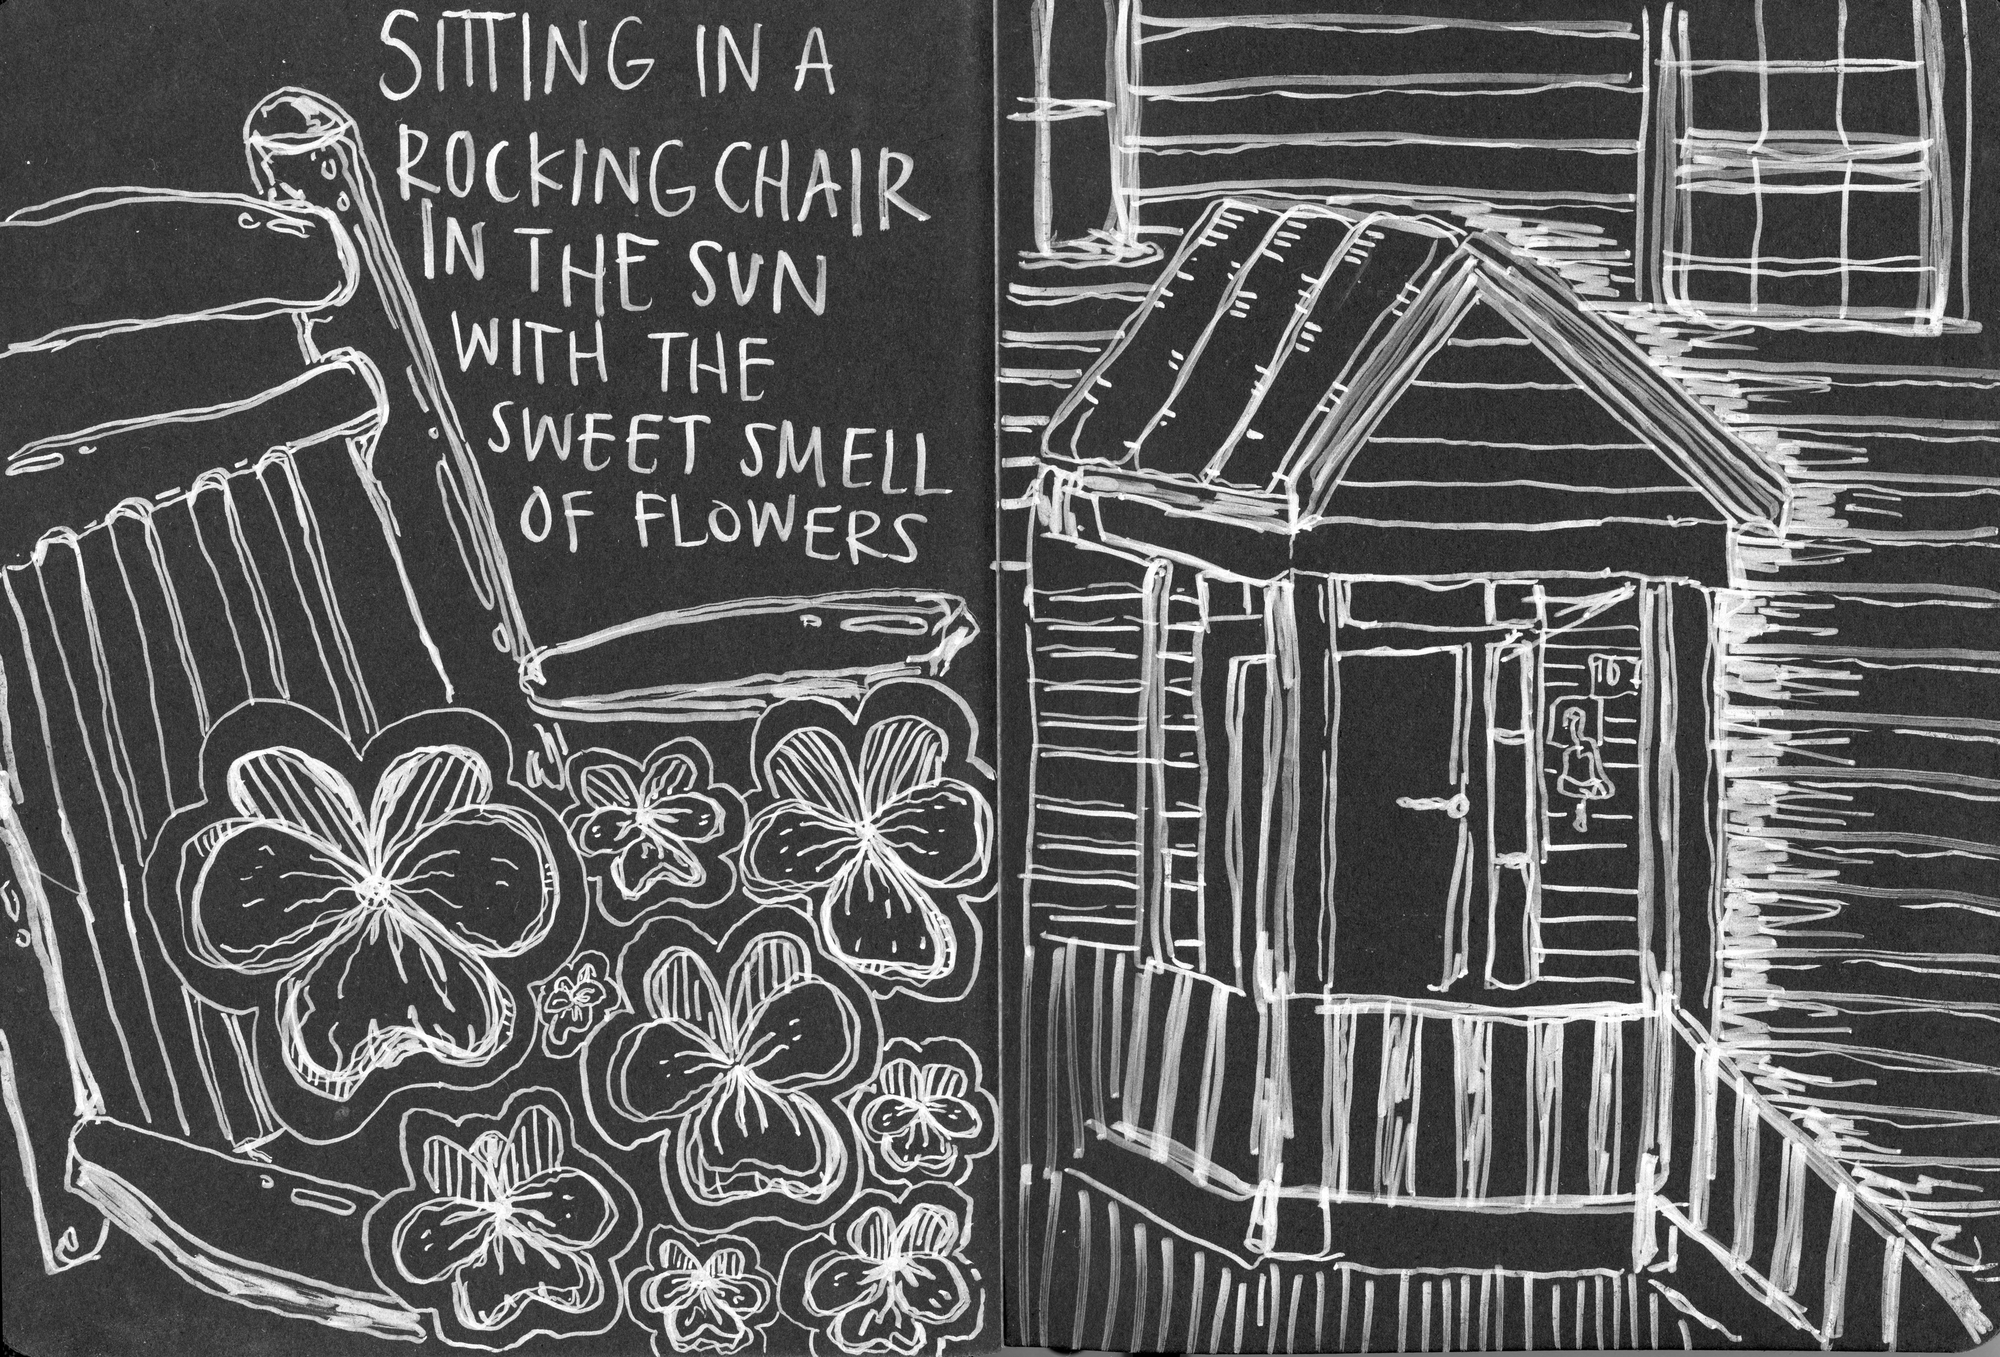 SITTING IN A
ROCKING CHAIR
IN THE SUN
WITH THE
SWEET SMELL
OF FLOWERS